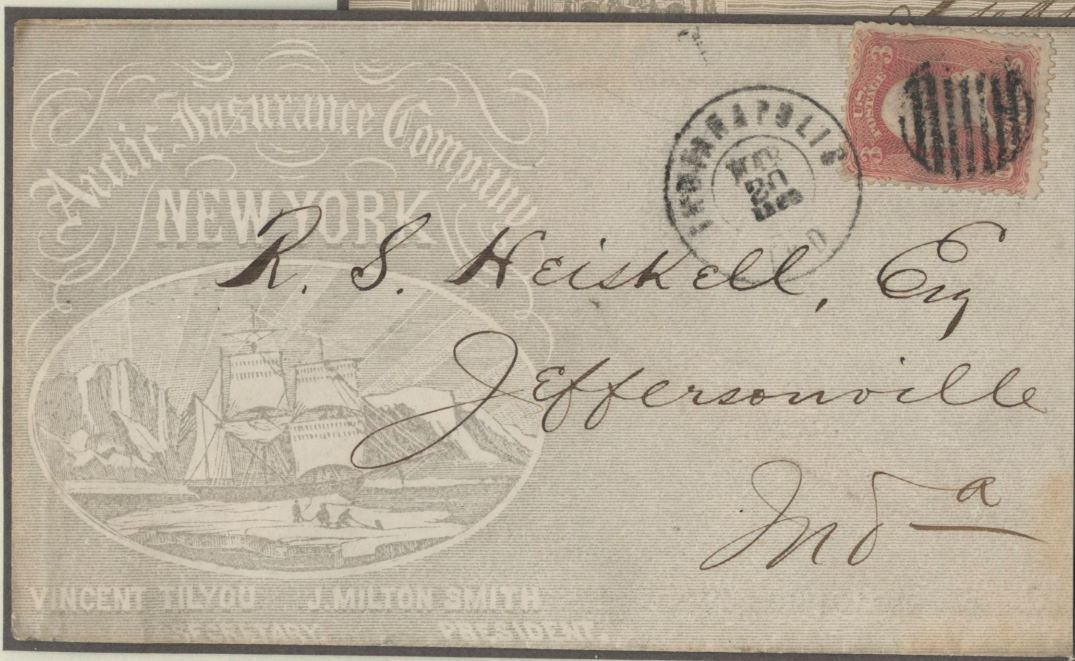 Arctic Insurance Company
NEW YORK
INDIANAPOLIS
NOV
20
IND
U.S. POSTAGE
3
3
R. S. Heiskell, Esq
Jeffersonville
Inda
VINCENT TILYOU J. MILTON SMITH
SECRETARY PRESIDENT.